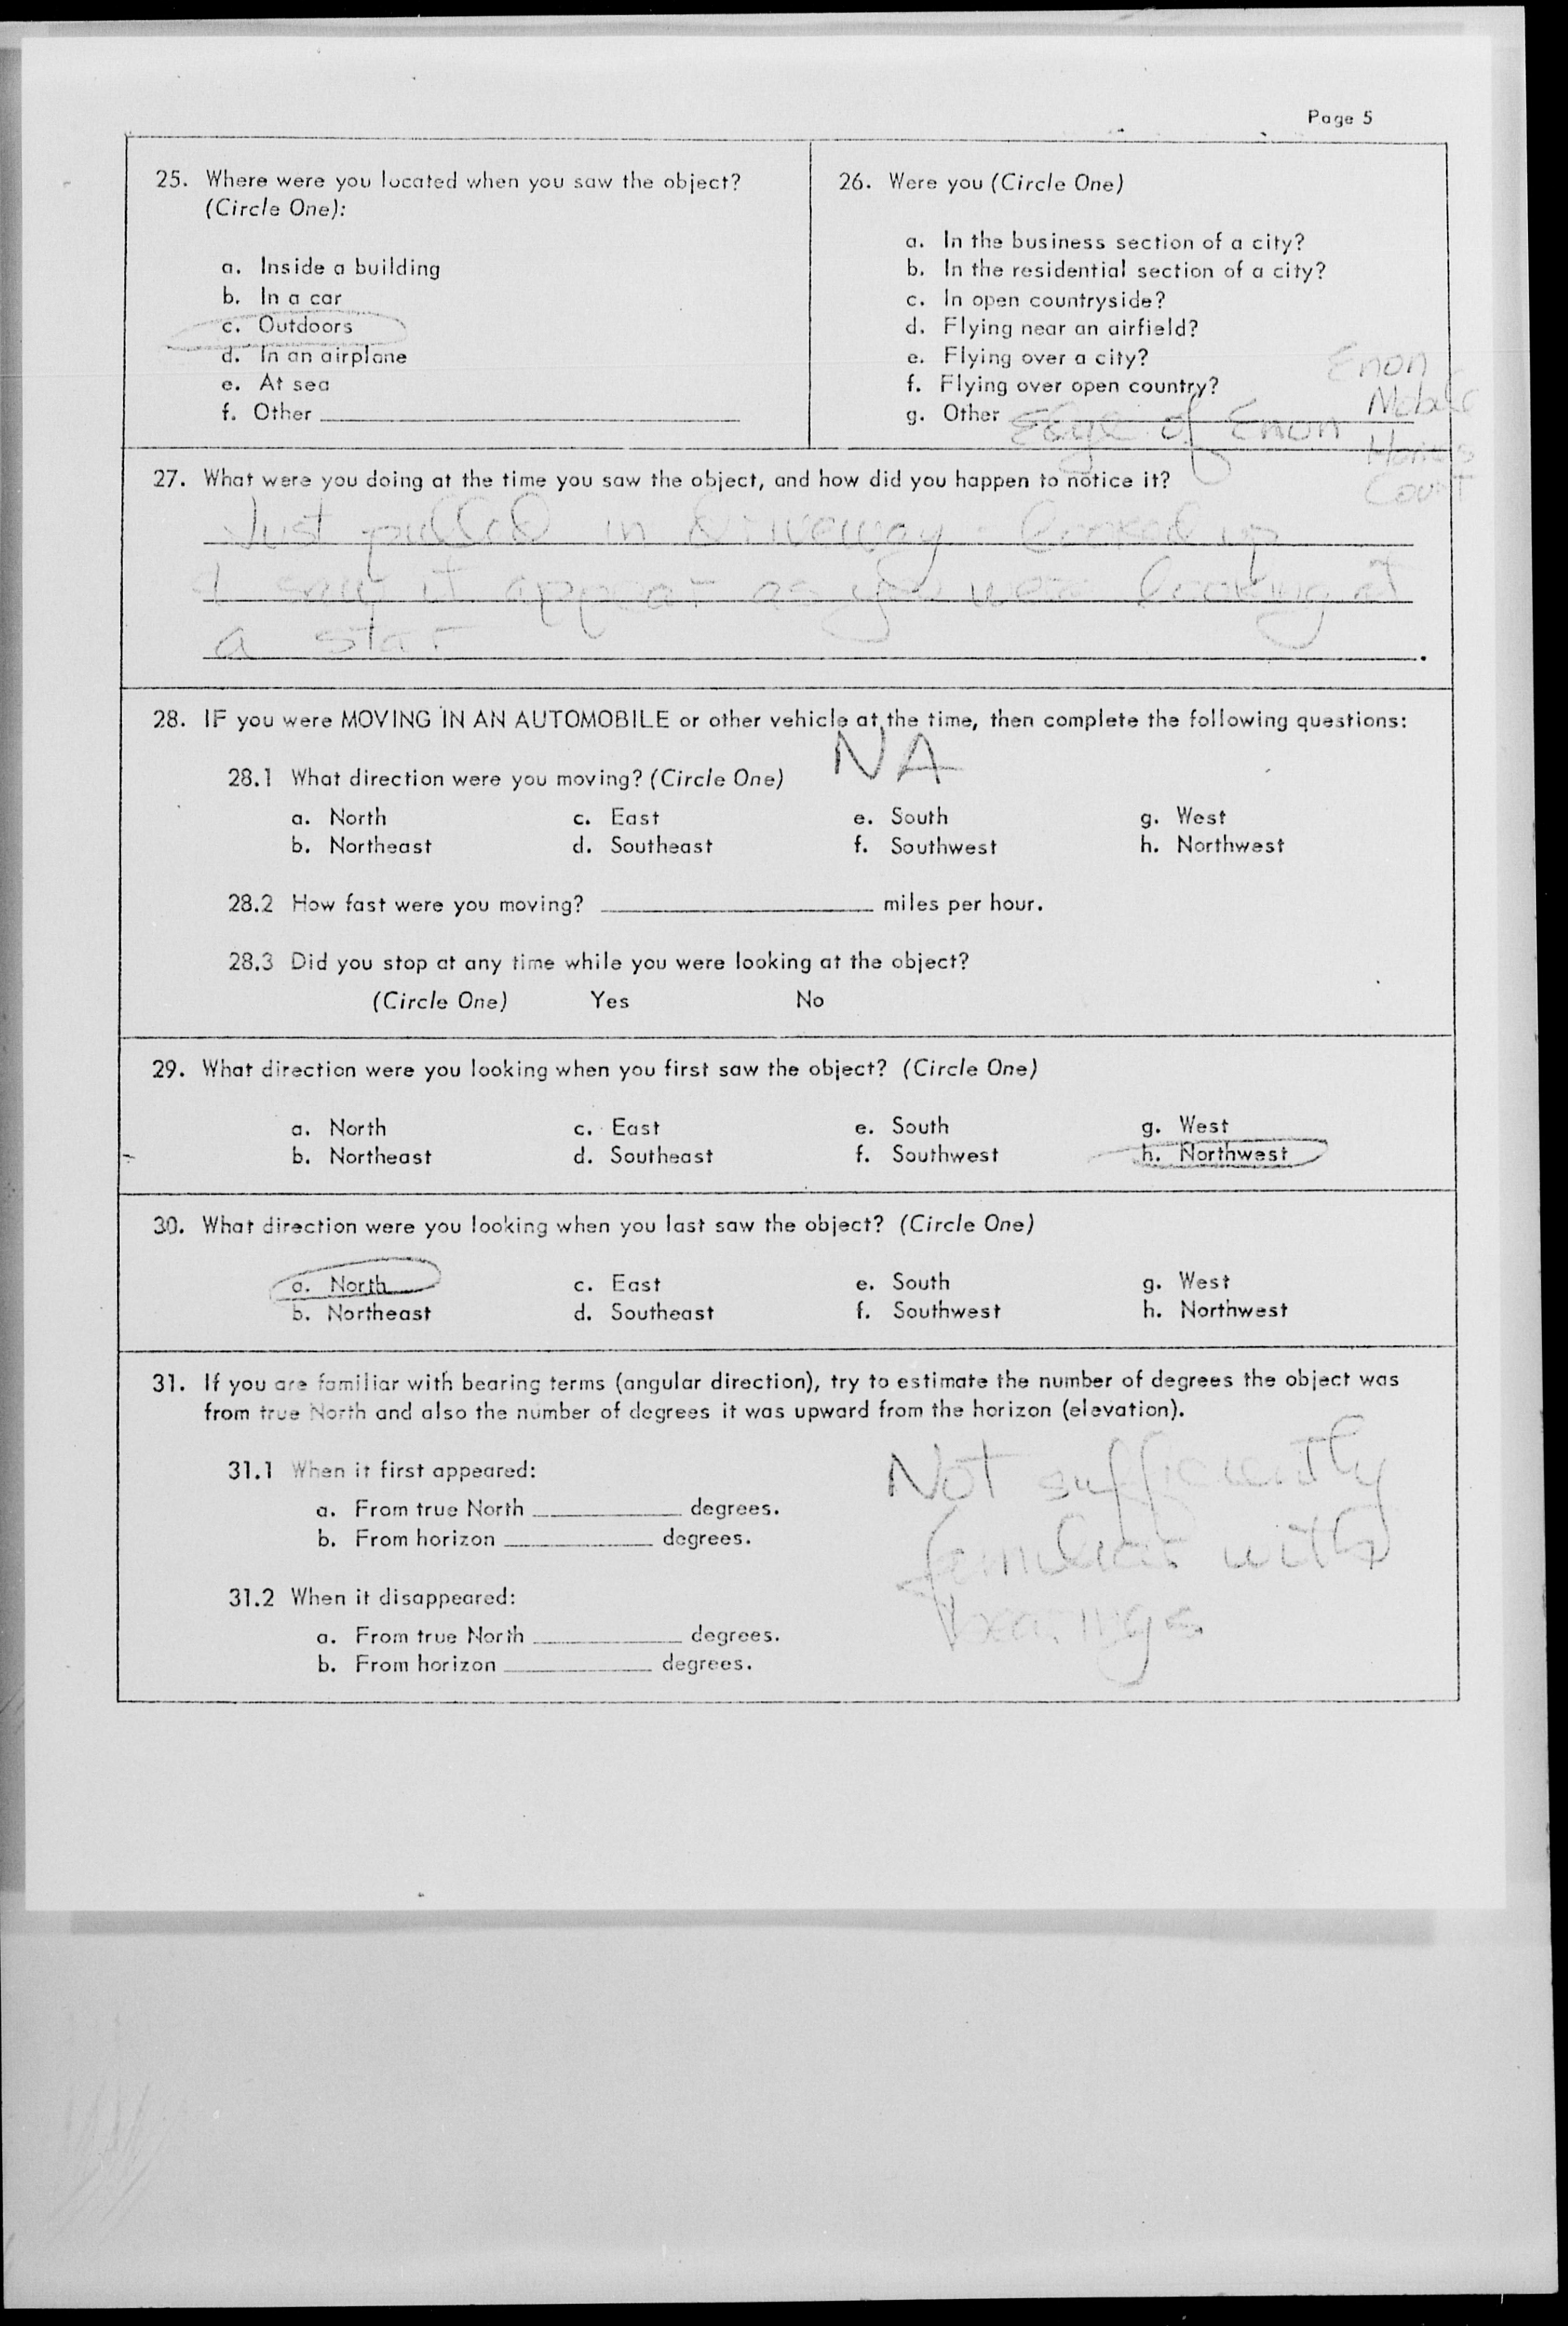 Page 5
25. Where were you located when you saw the object?
(Circle One):
a. Inside a building
b. In a car
c. Outdoors
d. In an airplane
e. At sea
f. Other
26. Were you (Circle One)
a. In the business section of a city?
b. In the residential section of a city?
c. In open countryside?
d. Flying near an airfield?
e. Flying over a city?
f. Flying over open country?
g. Other Edge of Enon
Enon
Mobile
Homes
Court
27. What were you doing at the time you saw the object, and how did you happen to notice it?
Just pulled in Driveway - looked up
& saw it appear as you were looking at
a star
.
28. IF you were MOVING IN AN AUTOMOBILE or other vehicle at the time, then complete the following questions:
NA
28.1 What direction were you moving? (Circle One)
a. North c. East e. South g. West
b. Northeast d. Southeast f. Southwest h. Northwest
28.2 How fast were you moving? miles per hour.
28.3 Did you stop at any time while you were looking at the object?
(Circle One) Yes No
29. What direction were you looking when you first saw the object? (Circle One)
a. North c. East e. South g. West
b. Northeast d. Southeast f. Southwest h. Northwest
30. What direction were you looking when you last saw the object? (Circle One)
a. North c. East e. South g. West
b. Northeast d. Southeast f. Southwest h. Northwest
31. If you are familiar with bearing terms (angular direction), try to estimate the number of degrees the object was
from true North and also the number of degrees it was upward from the horizon (elevation).
31.1 When it first appeared:
a. From true North degrees.
b. From horizon degrees.
31.2 When it disappeared:
a. From true North degrees.
b. From horizon degrees.
Not sufficiently
familiar with
bearings